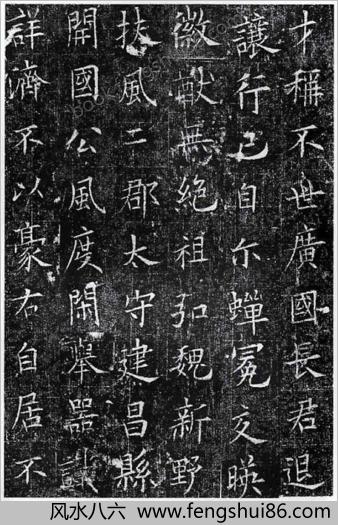 才稱不世廣國長君退
讓行己自尒蟬冕交暎
徽猷無絕祖弘魏新野
扶風二郡太守建昌縣
開國公風度閑舉器識
詳濟不以豪右自居不
风水八六 www.fengshui86.com